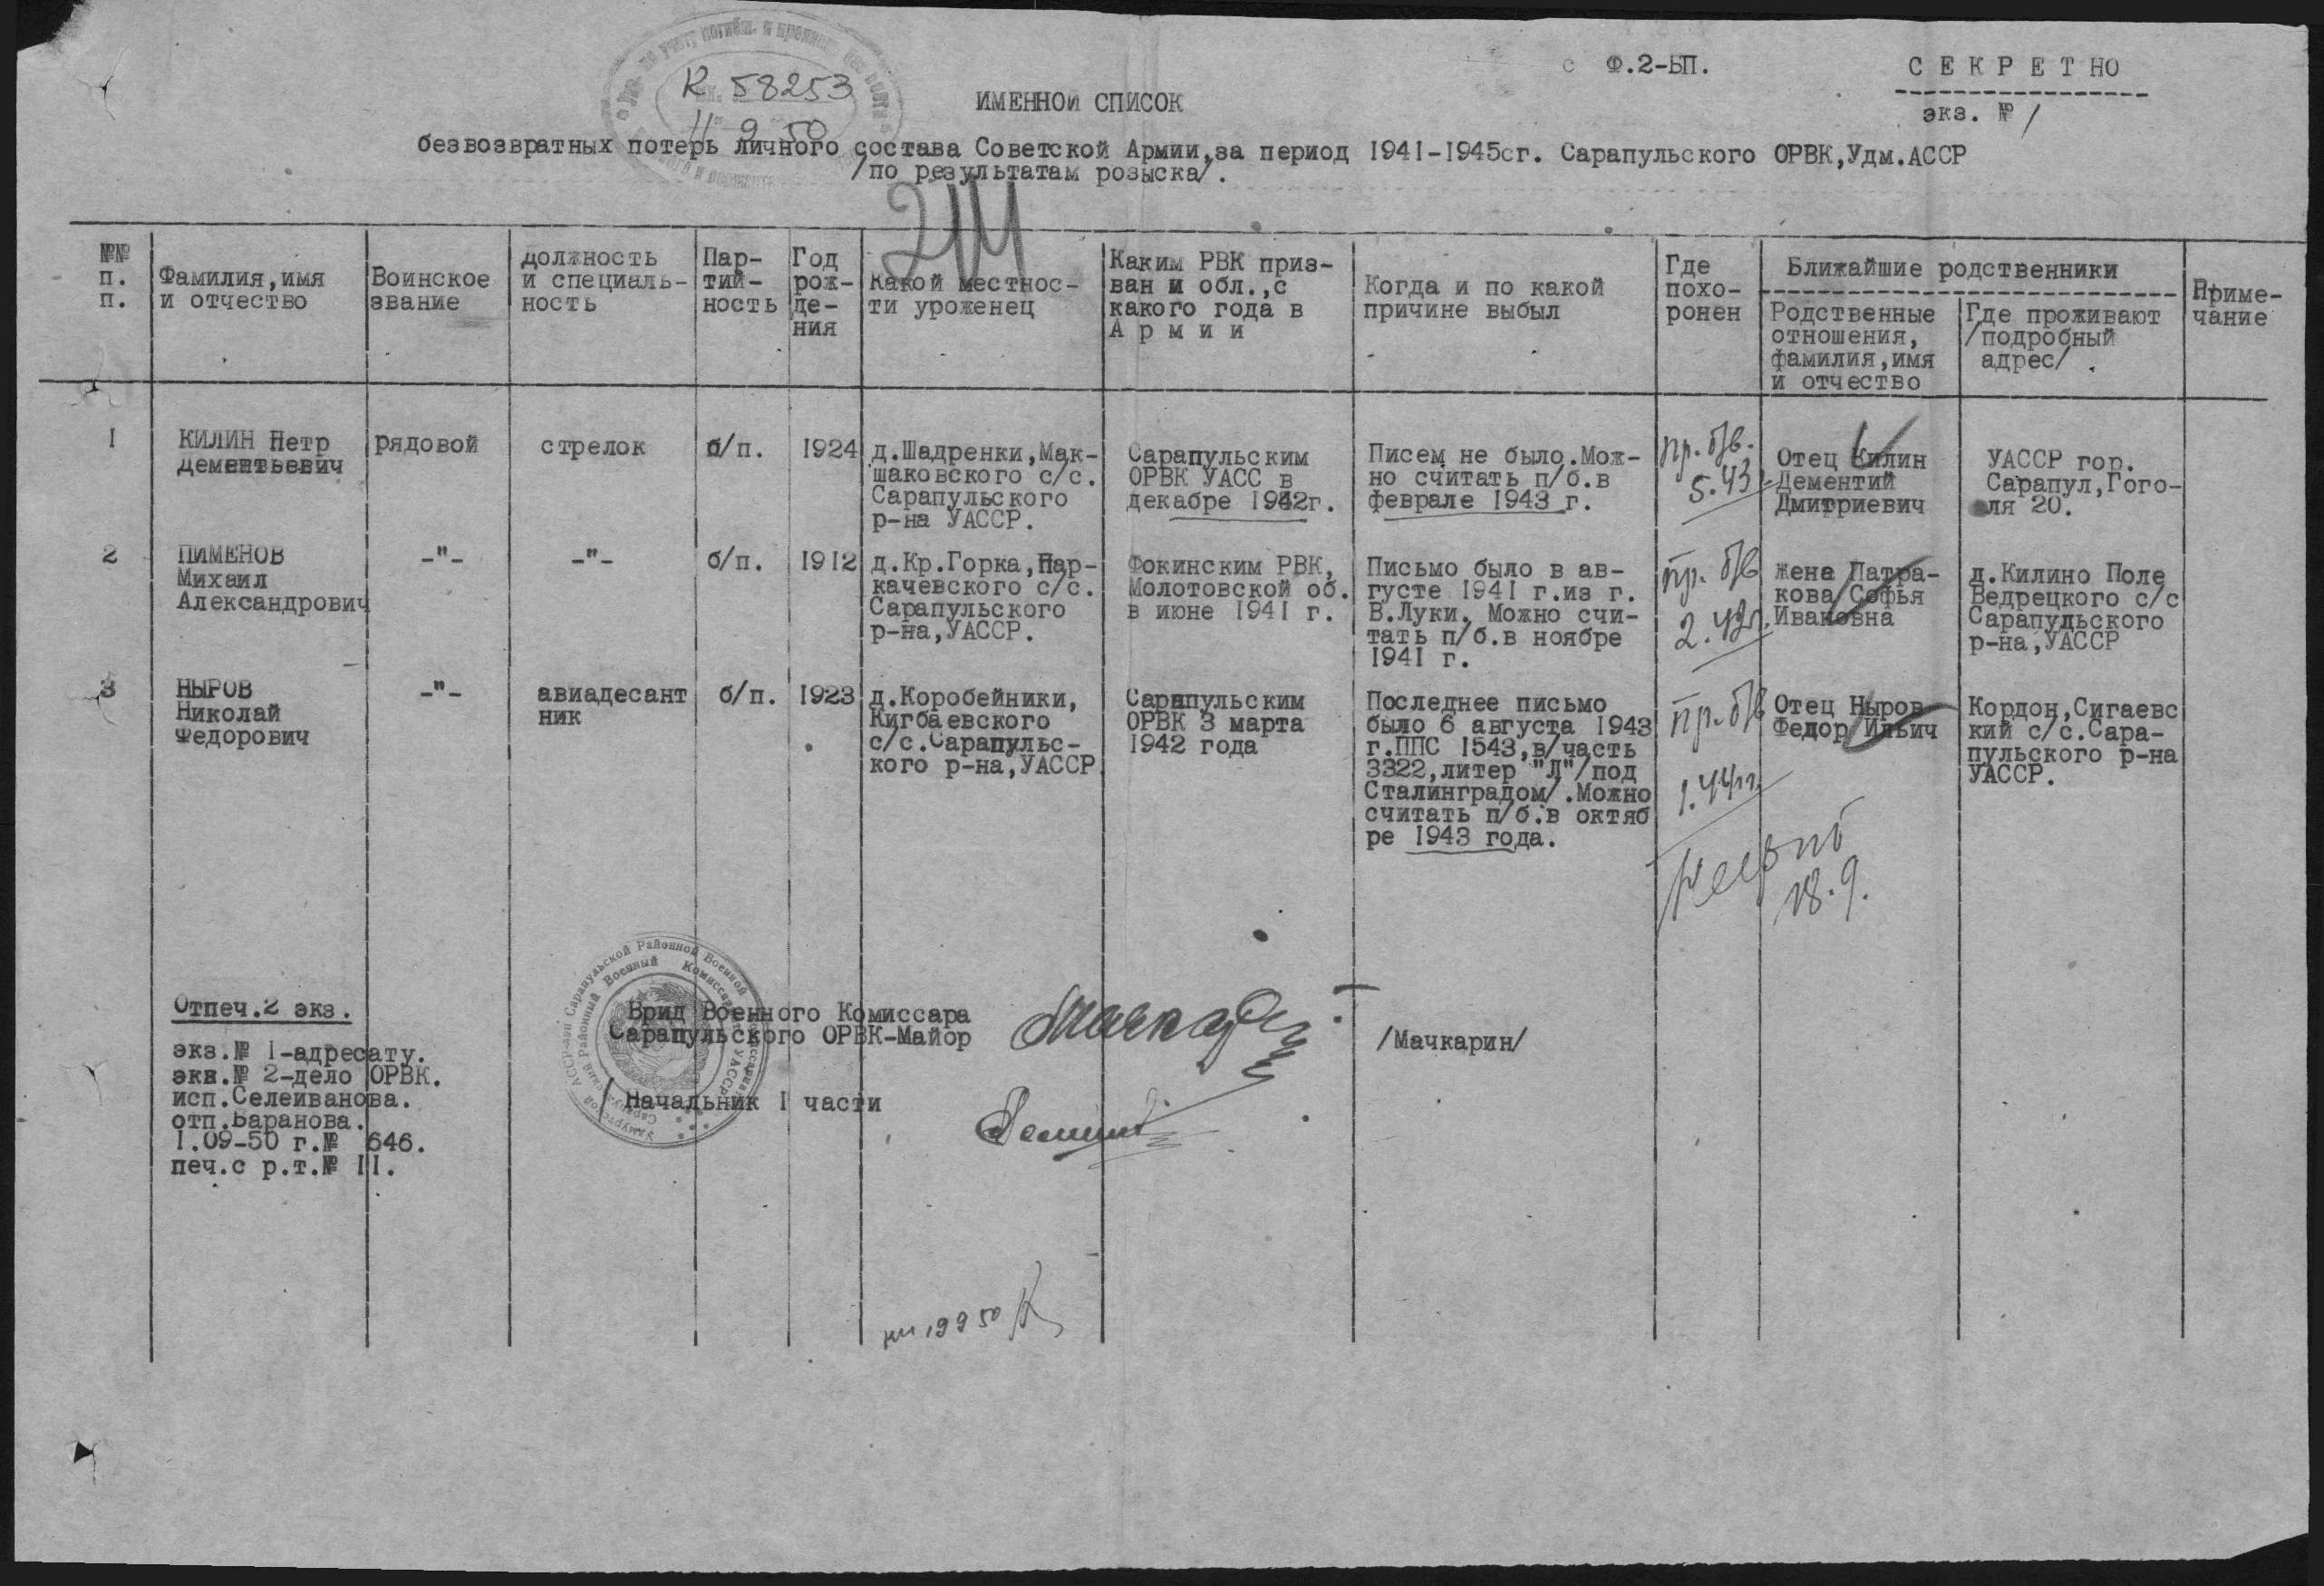 с Ф.2-БП.
С Е К Р Е Т НО
экз. № 1
К 58253
11 9 50
ИМЕННОЙ СПИСОК
безвозвратных потерь личного состава Советской Армии,за период 1941-1945сг. Сарапульского ОРВК,Удм.АССР
/по результатам розыска/.
№№
п.
п.
Фамилия,имя
и отчество
Воинское
звание
должность
и специаль-
ность
Пар-
тий-
ность
Год
рож-
де-
ния
Какой местнос-
ти уроженец
Каким РВК приз-
ван и обл.,с
какого года в
А р м и и
Когда и по какой
причине выбыл
Где
похо-
ронен
Ближайшие родственники
Родственные
отношения,
фамилия,имя
и отчество
Где проживают
/подробный
адрес/
Приме-
чание
1
КИЛИН Петр
дементьевич
рядовой
стрелок
б/п.
1924
д.Шадренки,Мак-
шаковского с/с.
Сарапульского
р-на УАССР.
Сарапульским
ОРВК УАСС в
декабре 1942г.
Писем не было.Мож-
но считать п/б.в
феврале 1943 г.
пр. б/в.
5.43
Отец Килин
Дементий
Дмитриевич
УАССР гор.
Сарапул,Гого-
ля 20.
2
ПИМЕНОВ
Михаил
Александрович
-"-
-"-
б/п.
1912
д.Кр.Горка,Пар-
качевского с/с.
Сарапульского
р-на,УАССР.
Фокинским РВК,
Молотовской об.
в июне 1941 г.
Письмо было в ав-
густе 1941 г.из г.
В.Луки. Можно счи-
тать п/б.в ноябре
1941 г.
пр. б/в
2.42г.
жена Патра-
кова Софья
Ивановна
д.Килино Поле
Ведрецкого с/с
Сарапульского
р-на,УАССР
3
НЫРОВ
Николай
Федорович
-"-
авиадесант
ник
б/п.
1923
д.Коробейники,
Кигбаевского
с/с.Сарапульс-
кого р-на,УАССР
Сарапульским
ОРВК 3 марта
1942 года
Последнее письмо
было 6 августа 1943
г.ППС 1543,в/часть
3322,литер "Л"/под
Сталинградом/.Можно
считать п/б.в октяб
ре 1943 года.
пр. б/в
1.44г.
Отец Ныров
Федор Ильич
Кордон,Сигаевс
кий с/с.Сара-
пульского р-на
УАССР.
18.9.
Отпеч.2 экз.
экз.№ 1-адресату.
экз.№ 2-дело ОРВК.
исп.Селеиванова.
отп.Баранова.
1.09-50 г.№ 646.
печ.с р.т.№ 11.
Врид Военного Комиссара
Сарапульского ОРВК-Майор
/Мачкарин/
Начальник 1 части
19 9 50